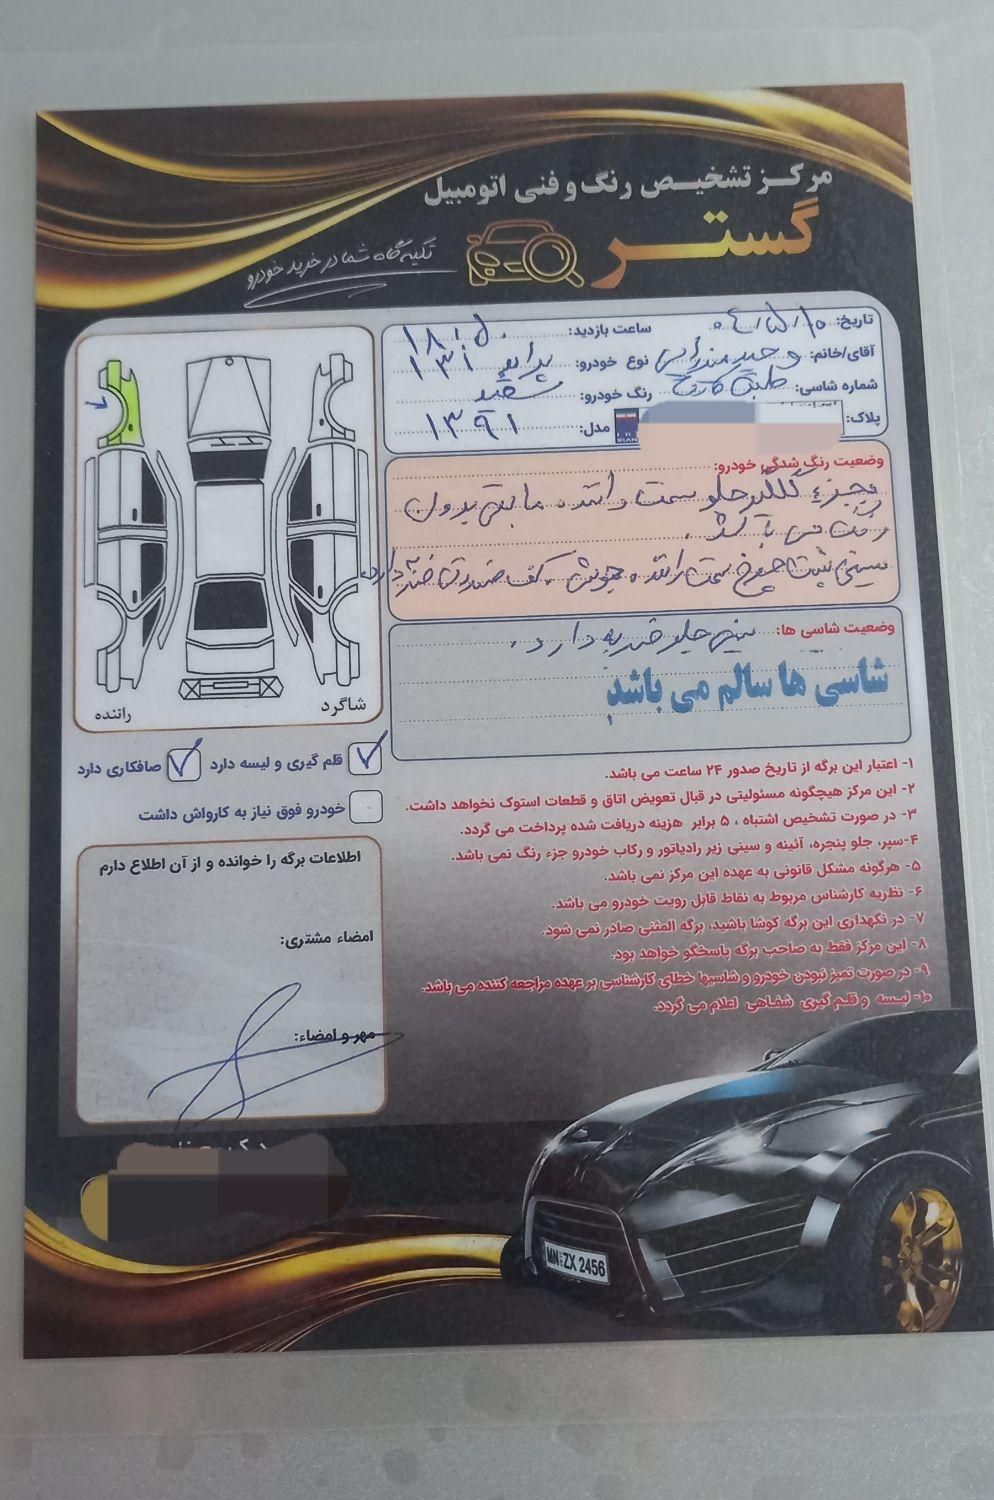 مرکز تشخیص رنگ و فنی اتومبیل
گستر
تکیه گاه شما در خرید خودرو
تاریخ: ۰۴/۵/۱۰ ساعت بازدید: ۱۸:۵۰
آقای/خانم: وحید نوع خودرو: پراید ۱۳۱
شماره شاسی: طبق کارت رنگ خودرو: سفید
پلاک: I.R. IRAN مدل: ۱۳۹۱
وضعیت رنگ شدگی خودرو:
بجزء گلگیر جلو سمت راننده مابقی بدون
رنگ می باشد.
سینی پشت چرخ سمت راننده جوش. کف صندوق دارد
وضعیت شاسی ها: سینی جلو ضربه دارد.
شاسی ها سالم می باشد
راننده
شاگرد
قلم گیری و لیسه دارد
صافکاری دارد
خودرو فوق نیاز به کارواش داشت
اطلاعات برگه را خوانده و از آن اطلاع دارم
امضاء مشتری:
مهر و امضاء:
۱- اعتبار این برگه از تاریخ صدور ۲۴ ساعت می باشد.
۲- این مرکز هیچگونه مسئولیتی در قبال تعویض اتاق و قطعات استوک نخواهد داشت.
۳- در صورت تشخیص اشتباه ، ۵ برابر هزینه دریافت شده پرداخت می گردد.
۴-سپر، جلو پنجره، آئینه و سینی زیر رادیاتور و رکاب خودرو جزء رنگ نمی باشد.
۵- هرگونه مشکل قانونی به عهده این مرکز نمی باشد.
۶- نظریه کارشناس مربوط به نقاط قابل رویت خودرو می باشد.
۷- در نگهداری این برگه کوشا باشید، برگه المثنی صادر نمی شود.
۸- این مرکز فقط به صاحب برگه پاسخگو خواهد بود.
۹- در صورت تمیز نبودن خودرو و شاسیها خطای کارشناسی بر عهده مراجعه کننده می باشد.
۱۰- لیسه و قلم گیری شفاهی اعلام می گردد.
MN ZX 2456